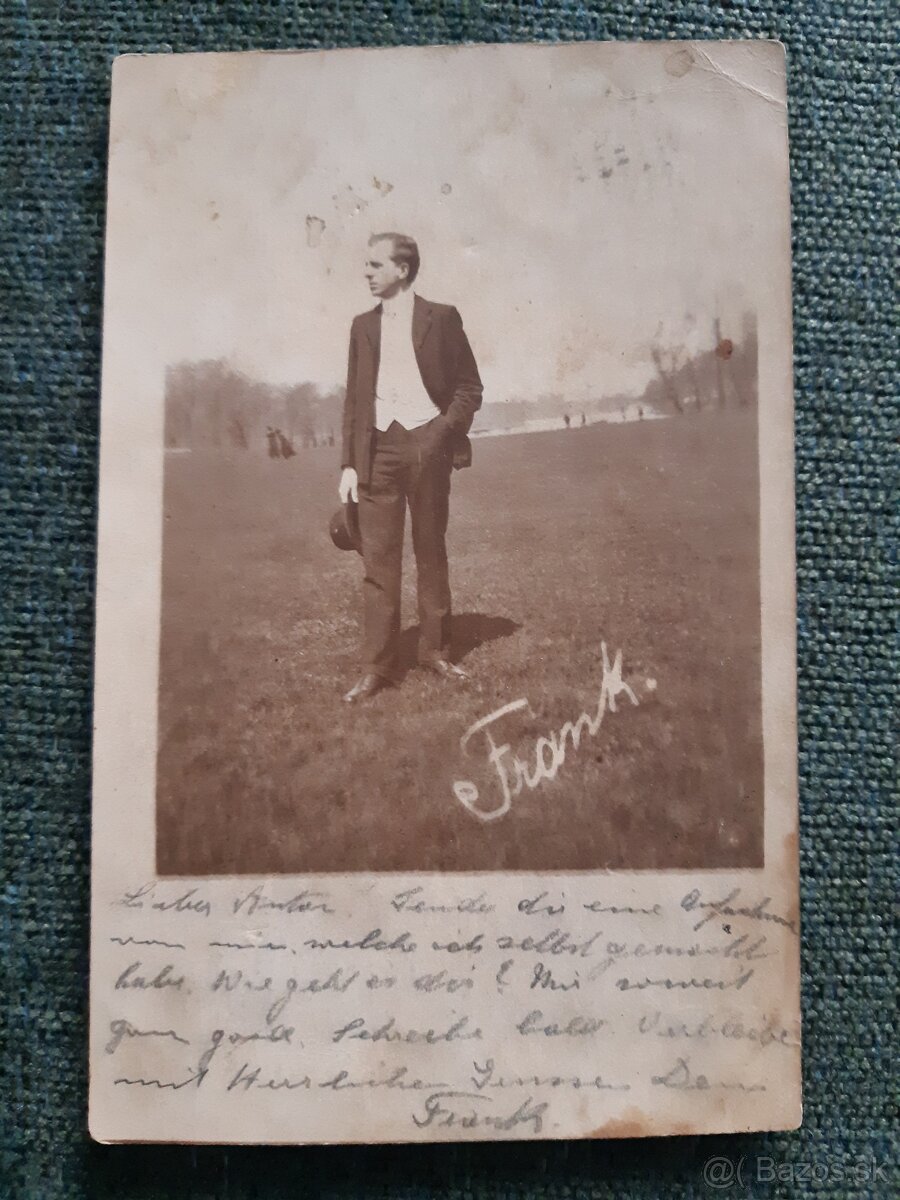 Frank.
Lieber Anton. Sende dir eine Aufnahme
von mir, welche ich selbst gemacht
habe. Wie geht es dir? Mir soweit
ganz good. Schreibe bald. Verbleibe
mit Herzlichen Grüssen Dein
Frank.
@( Bazos.sk